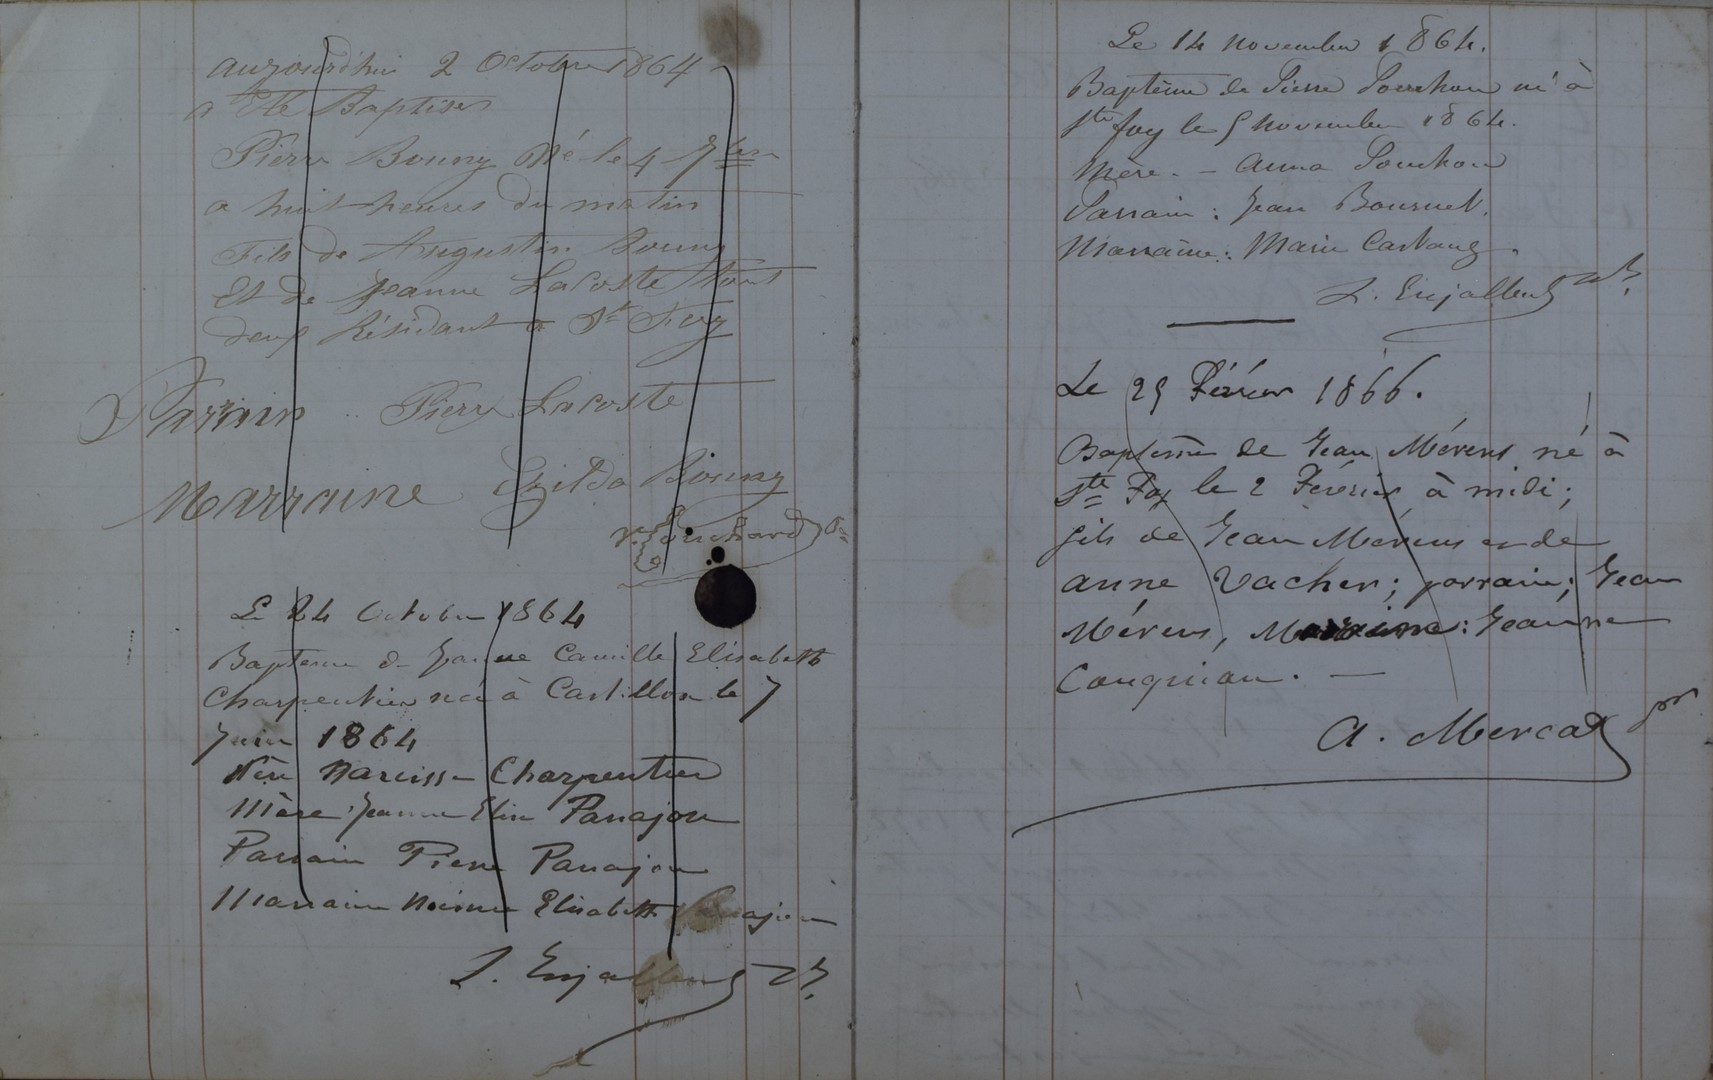 aujourd'hui 2 Octobre 1864
a Eté Baptiser
Pierre Bouny Né le 4 7bre
a huit heures du matin
Fils de Augustin Bouny
Et de Jeanne Lacoste Tout
deux Résidant a Ste Foy
Parrain Pierre Lacoste
Marraine Bouny
Le 24 Octobre 1864
Bapteme de Jeanne Camille Elisabeth
Charpentier née à Castillon le 7
Juin 1864
Père Narcisse Charpentier
Mère Jeanne Elise Panajou
Parrain Pierre Panajou
Marraine Elisabeth Panajou
Le 14 novembre 1864.
Baptême de Pierre Pouchou né à
Ste foy le 5 novembre 1864.
Mère. - Anna Pouchou
Parrain : Jean
Marraine : Marie
Le 25 Février 1866.
Baptême de Jean Mérens né à
Ste Foy le 2 Février à midi ;
fils de Jean Mérens et de
anne Vacher ; parrain ; Jean
Mérens, Marraine : Jeanne
A. Mercat